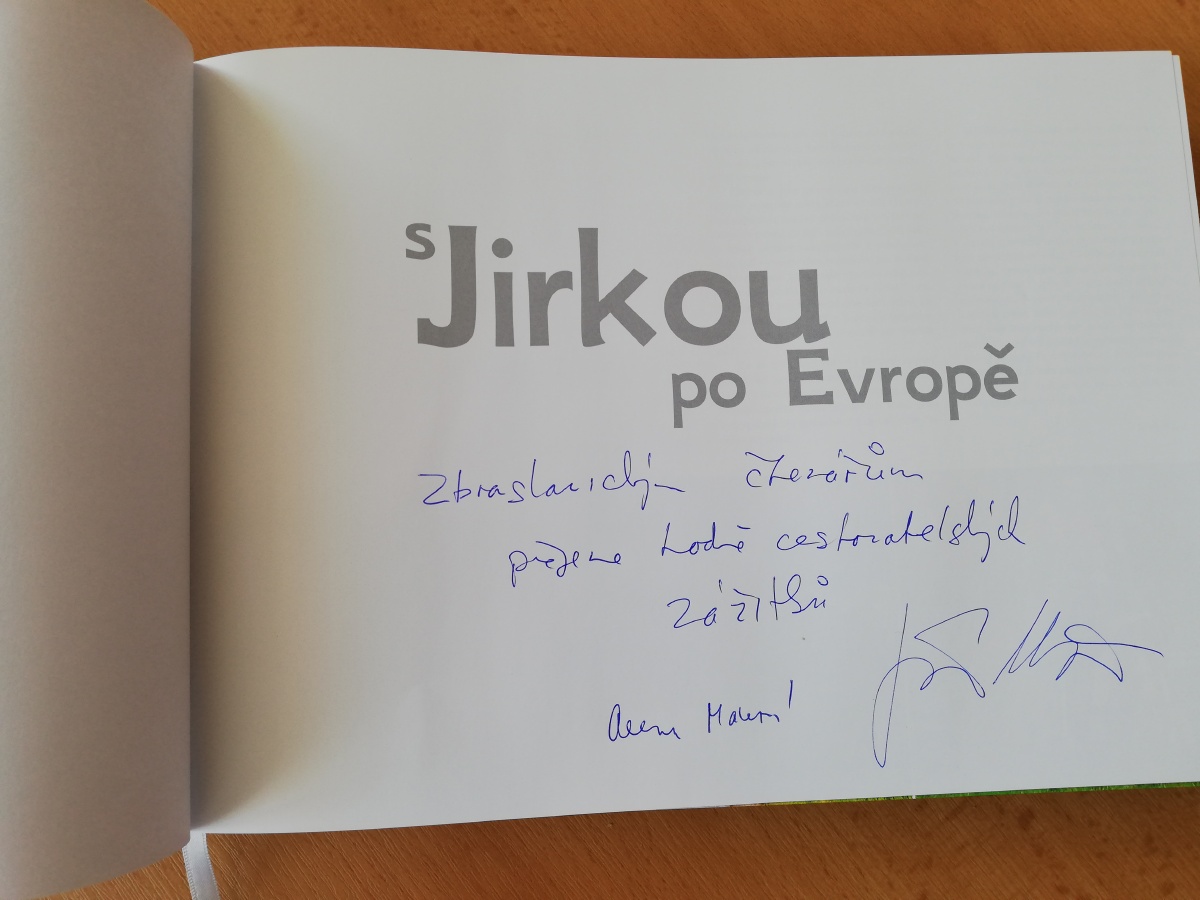 s Jirkou
po Evropě
Zbraslavickým čtenářům
přejeme hodně cestovatelských
zážitků